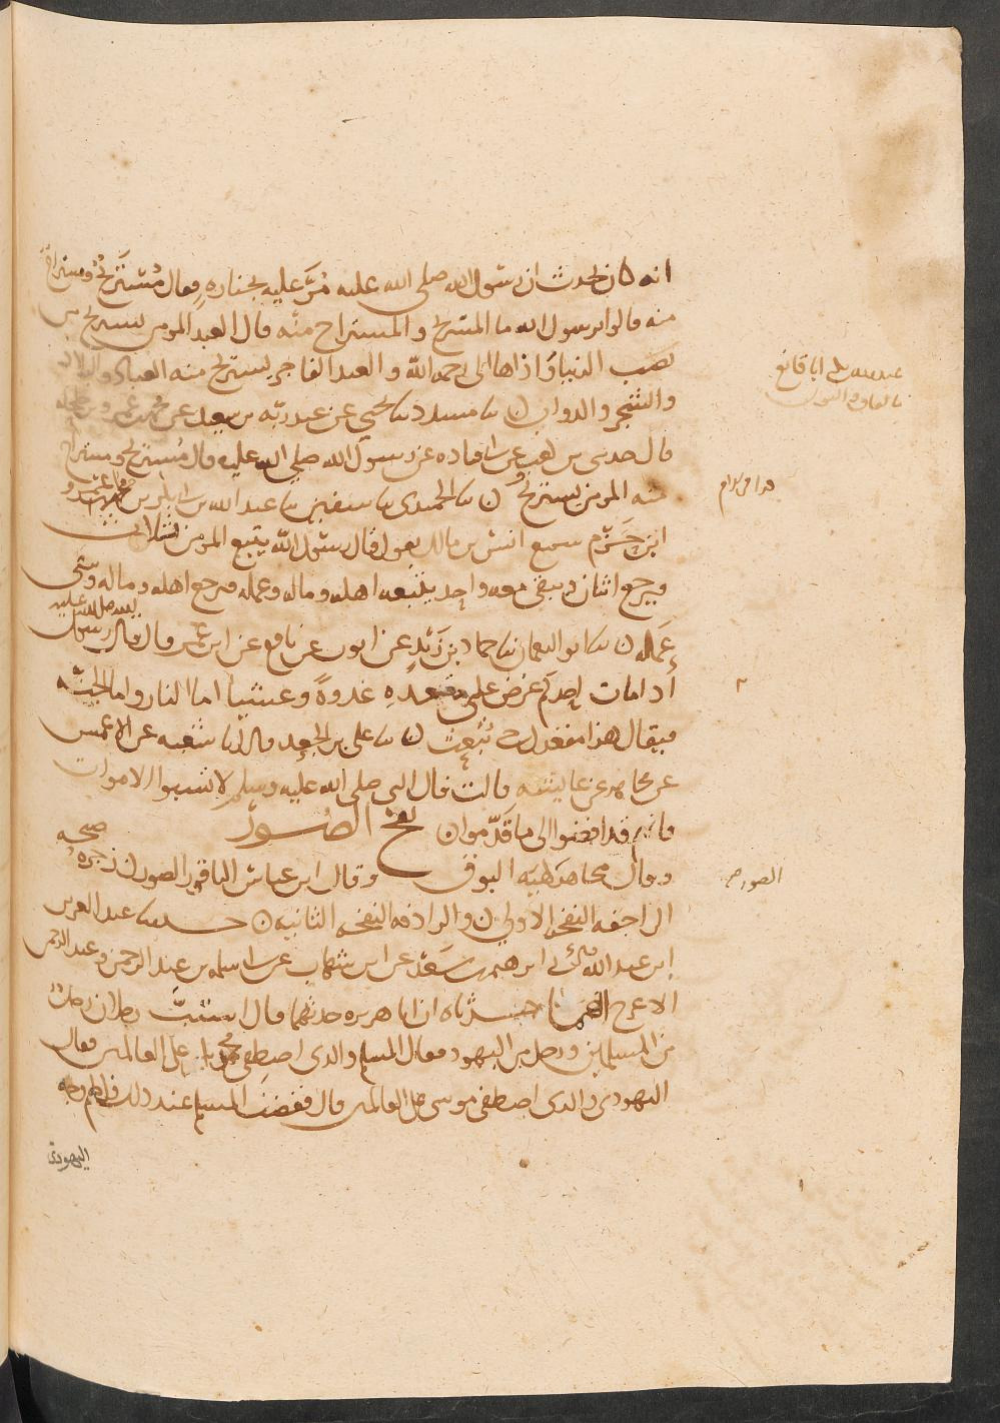 انه كان يحدث ان رسول الله صلى الله عليه مُرَّ عليه بجنازهٍ فقال مُسْتَرِيحٌ ومستراحٌ
منه قالوا يرسول الله ما المستريح والمستراح منه قال العبد المومن يستريح من
نصب الدنيا واذاها الى رحمه الله والعبد الفاجر يستريح منه العباد والبلاد
والشجر والدواب ن سا مسدد سا يحيى عن عبد ربه بن سعيد عن محمد بن عمرو بن حلحله
قال حدثنى بن كعب عن ابى قتاده عن رسول الله صلى الله عليه قال مُستريح ومستراح
منه المومن يستريحُ ن سا الحميدى سا سفين سا عبد الله بن ابى بكر بن محمد بن عمرو
ابن حَزْم سمع انس بن مالك يقول قال رسول الله يتبع المومن ثلاث
فيرجع اثنان ويبقى معه واحد يتبعه اهله وماله وعمله فيرجع اهله وماله ويبقى
عَمَله ن سا ابو النعمان سا حماد بن زَيْدٍ عن ايوب عن نافع عن ابن عمر قال قال رسول الله صلى الله عليه
اذا مات احدكم عُرض على مقعدهِ غدوةً وعشيا اما النار واما الجنه
فيقال هذا مقعدك حتى تُبْعث ن سا على بن الجعد قال انا شعبه عن الاعمش
عن مجاهد عن عايشه قالت قال النبى صلى الله عليه وسلم لا تسبوا الاموات
فانهم قد افضوا الى ما قدّموا ن نفخ الصُور
وقال مجاهد كهيَه البوق وقال ابن عباس الناقور الصور ن زجره صيحه
الراجفه النفخه الاولى ن والرادفه النفخه الثانيه ن حدثنا عبد العزيز
ابن عبد الله حدثنى ابرهيم بن سَعْد عن ابن شهاب عن ابى سلمه بن عبد الرحمن وعبد الرحمن
الاعرج انهما حدثاه ان ابا هريره حدثهما قال استبَّ رجلان رجلٌ
من المسلمين ورجل من اليهود فقال المسلم والذى اصطفى محمدا على العالمين فقال
اليهودى والذى اصطفى موسى على العالمين قال فغضب المسلم عند ذلك فلطم وجه
اليهودى
الصور